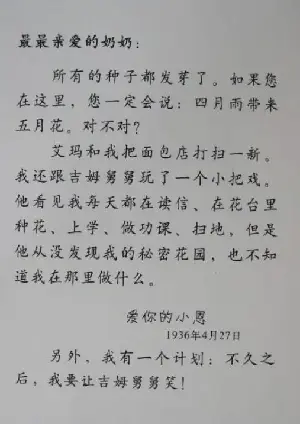 最最亲爱的奶奶：
所有的种子都发芽了。如果您
在这里，您一定会说：四月雨带来
五月花。对不对？
艾玛和我把面包店打扫一新。
我还跟吉姆舅舅玩了一个小把戏。
他看见我每天都在读信、在花台里
种花、上学、做功课、扫地，但是
他从没发现我的秘密花园，也不知
道我在那里做什么。
爱你的小恩
1936年4月27日
另外，我有一个计划：不久之
后，我要让吉姆舅舅笑！